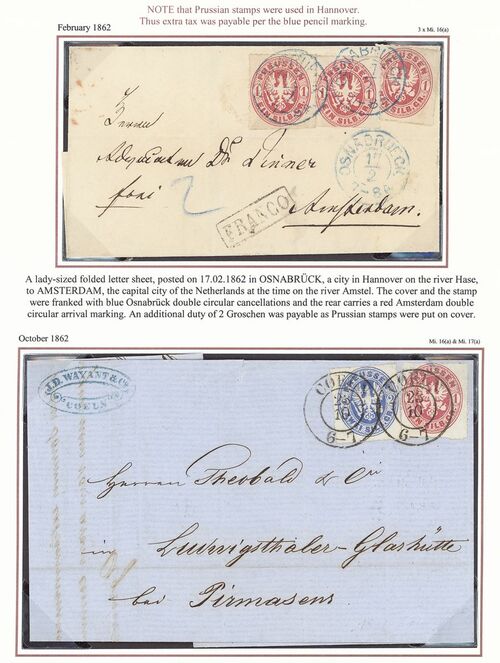 NOTE that Prussian stamps were used in Hannover.
Thus extra tax was payable per the blue pencil marking.
February 1862
3 x Mi. 16(a)
PREUSSEN
1 EIN SILB.GR. 1
PREUSSEN
1 EIN SILB.GR. 1
PREUSSEN
1 EIN SILB.GR. 1
Herrn
OSNABRÜCK
17
2
Dr.
2
FRANCO
Amsterdam.
A lady-sized folded letter sheet, posted on 17.02.1862 in OSNABRÜCK, a city in Hannover on the river Hase,
to AMSTERDAM, the capital city of the Netherlands at the time on the river Amstel. The cover and the stamp
were franked with blue Osnabrück double circular cancellations and the rear carries a red Amsterdam double
circular arrival marking. An additional duty of 2 Groschen was payable as Prussian stamps were put on cover.
October 1862
Mi. 16(a) & Mi. 17(a)
J.D. WAYANT & Co.
COELN
COELN
23
10
6-7
PREUSSEN
2
COELN
23
10
6-7
PREUSSEN
1
Herren Theobald & Cie
in Ludwigsthaler-Glashütte
bei Pirmasens